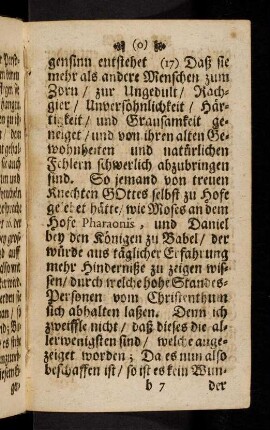 (0)
gensinn entstehet (17) Daß sie
mehr als andere Menschen zum
Zorn / zur Ungedult / Rach-
gier / Unversöhnlichkeit / Här-
tigkeit / und Grausamkeit ge-
neiget / und von ihren alten Ge-
wohnheiten und natürlichen
Fehlern schwerlich abzubringen
sind. So jemand von treuen
Knechten GOttes selbst zu Hofe
hätte / wie Moses an dem
Hofe Pharaonis, und Daniel
bey den Königen zu Babel / der
würde aus täglicher Erfahrung
mehr Hinderniße zu zeigen wis-
sen / durch welche hohe Standes-
Personen vom Christenthum
sich abhalten laßen. Denn ich
zweiffle nicht / daß dieses die al-
lerwenigsten sind / welche ange-
zeiget worden; Da es nun also
beschaffen ist / so ist es kein Wun-
b 7 der